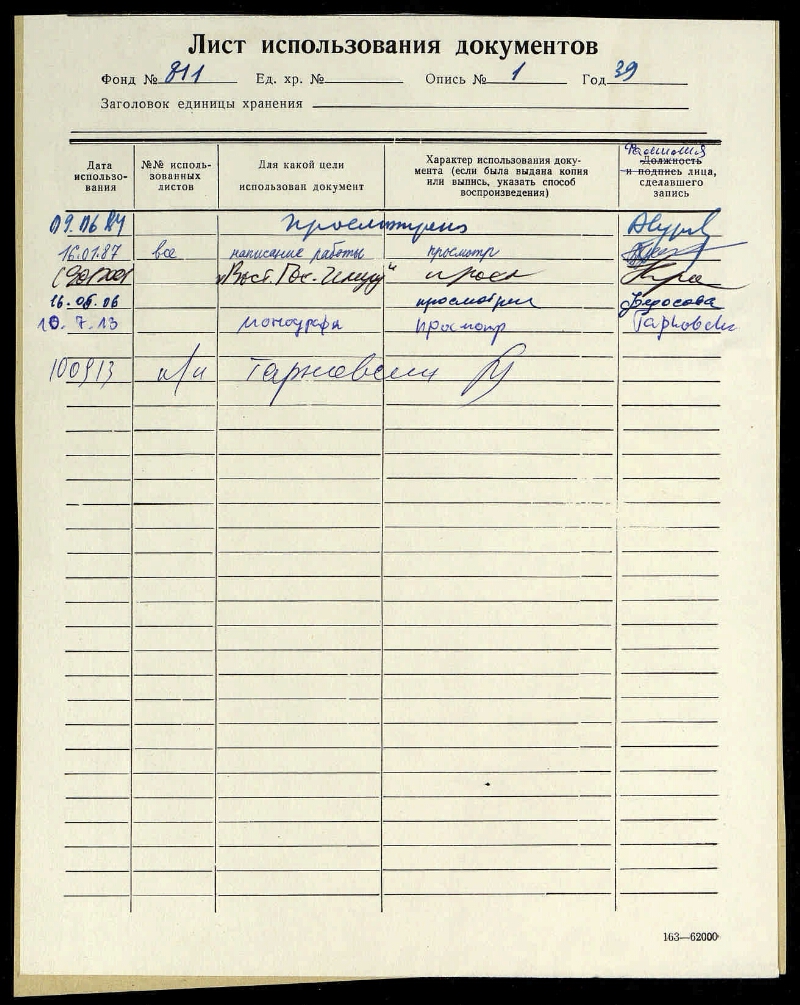 Лист использования документов
Фонд № 811 Ед. хр. № Опись № 1 Год 39
Заголовок единицы хранения
Дата использования
№№ использованных листов
Для какой цели использован документ
Характер использования документа (если была выдана копия или выпись, указать способ воспроизведения)
Фамилия
Должность
и подпись лица, сделавшего запись
09.06 84 Просмотрено
16.01.87 все написание работы просмотр
16.05.06 просмотрен Федосова
10.7.13 монография просмотр Тарковски
100913 Тарковски
163—62000